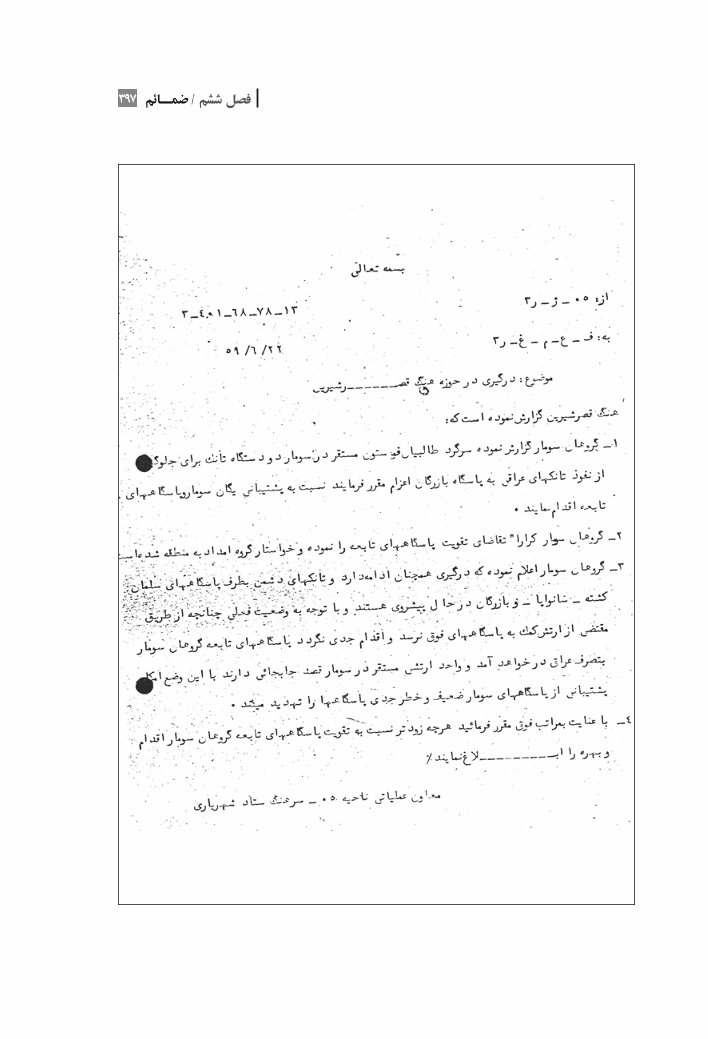 فصل ششم / ضمـــائم ۳۹۷
بسمه تعالی
از: ۰۵ ـ ژ ـ ر۳
۱۳ـ۷۸ـ۶۸ـ۴۰۱ـ۳
به: ف ـ ع ـ م ـ غ ـ ر۳
۲۲/۶/۵۹
موضوع: درگیری در حوزه هنگ قصــــــرشیرین
هنگ قصرشیرین گزارش نموده است که:
۱ـ گروهان سومار گزارش نموده سرگرد طالبیان ستون مستقر در سومار دو دستگاه تانک برای
از نفوذ تانکهای عراقی به پاسگاه بازرگان اعزام مقرر فرمایند نسبت به پشتیبانی یگان سومار و پاسگاههای
تابعه اقدام نمایند ۰
۲ـ گروهان سومار کرارا" تقاضای تقویت پاسگاههای تابعه را نموده و خواستار گروه امداد به منطقه شده است
۳ـ گروهان سومار اعلام نموده که درگیری همچنان ادامه دارد و تانکهای دشمن بطرف پاسگاههای سلمان
کشته ـ سانوایا ـ و بازرگان در حال پیشروی هستند و با توجه به وضعیت فعلی چنانچه از طریق
مقتضی از ارتش کمک به پاسگاههای فوق نرسد و اقدام جدی نگردد پاسگاههای تابعه گروهان سومار
بتصرف عراق در خواهد آمد و واحد ارتش مستقر در سومار قصد جابجائی دارند با این وضع
پشتیبانی از پاسگاههای سومار ضعیف و خطر جدی پاسگاهها را تهدید میکند ۰
۴ـ با عنایت بمراتب فوق مقرر فرمائید هرچه زودتر نسبت به تقویت پاسگاههای تابعه گروهان سومار اقدام
و بهره را ابــــــــــلاغ نمایند٪
معاون عملیاتی ناحیه ۰۵ ـ سرهنگ ستاد شهریاری